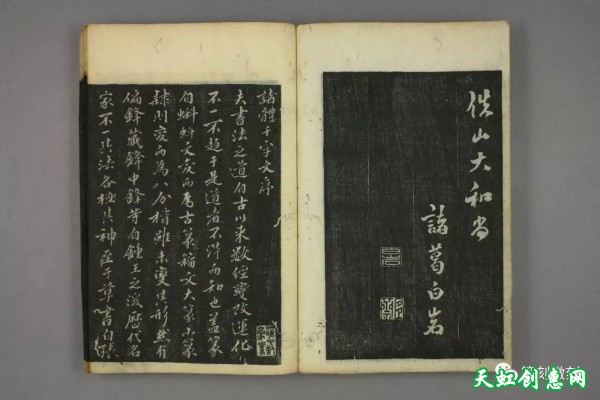 佚山大和尚
諸葛白岩
諸體千字文序
夫書法之道自古以來數經變改運化
不一不遊于是道者不得而知也蓋篆
自蝌蚪文变而為古篆籀文大篆小篆
隸則变而為八分楷雖未變其形然有
偏鋒藏鋒中鋒等自鍾王之後歷代名
家不一其法各極其神至于草書自張
天虹创惠网